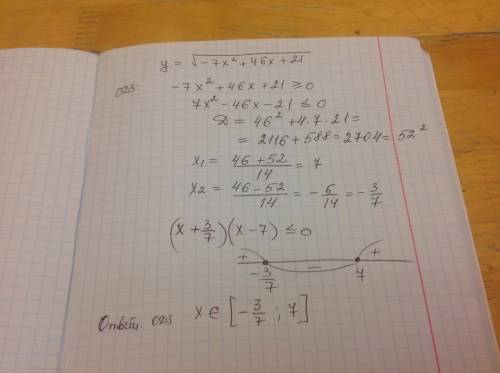 y = √(-7x² + 46x + 21)
ОДЗ: -7x² + 46x + 21 ≥ 0
7x² - 46x - 21 ≤ 0
D = 46² + 4·7·21 =
= 2116 + 588 = 2704 = 52²
x₁ = (46 + 52)/14 = 7
x₂ = (46 - 52)/14 = -6/14 = -3/7
(x + 3/7)(x - 7) ≤ 0
+ - +
-3/7 7
Ответ: ОДЗ x ∈ [-3/7 ; 7]